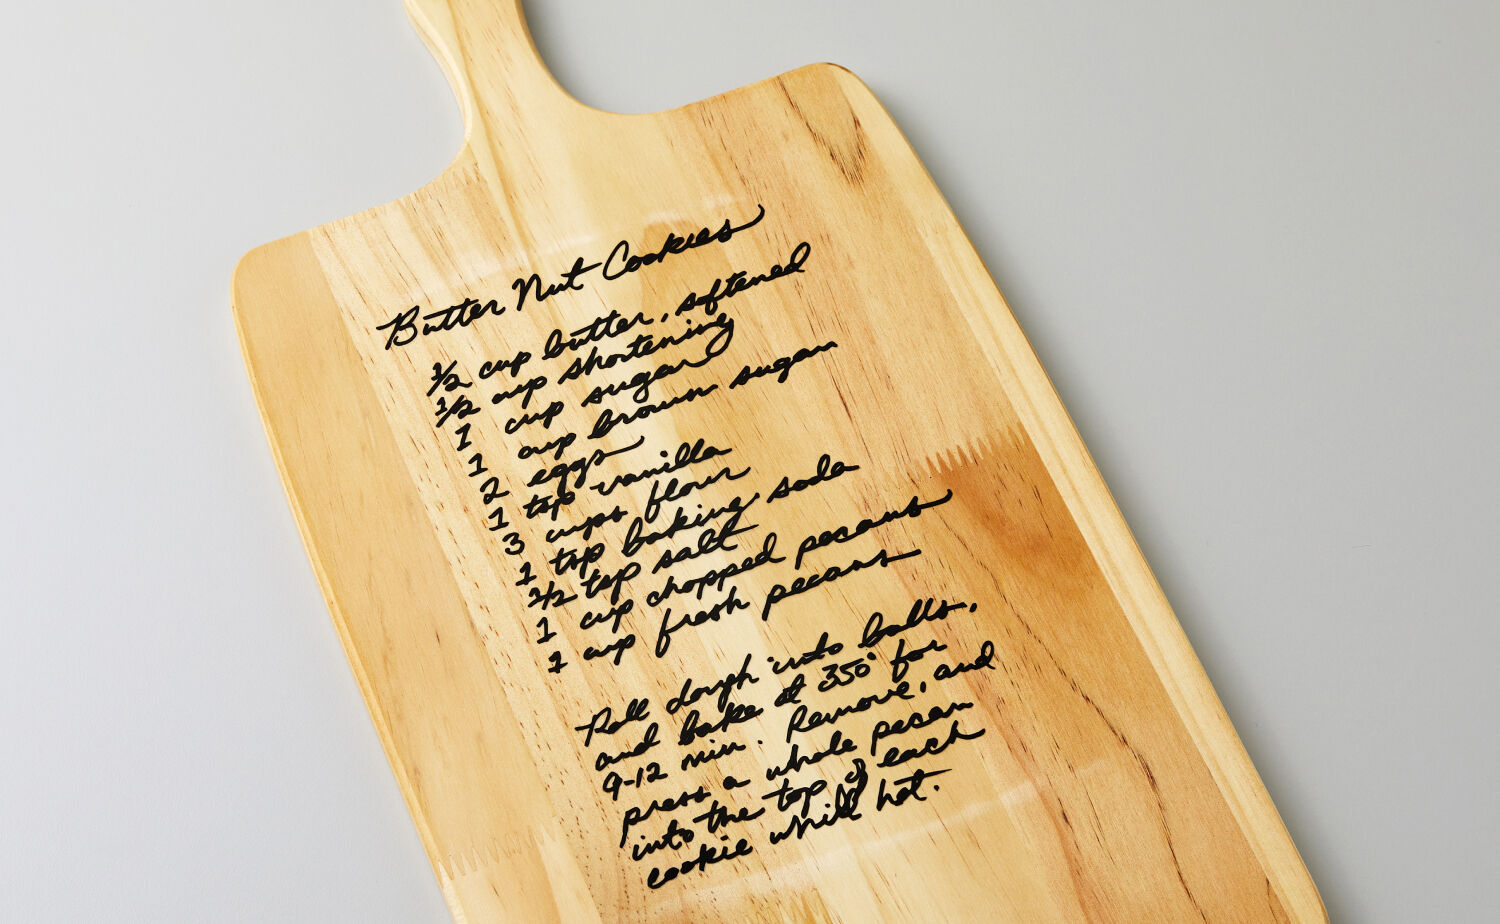 Butter Nut Cookies
1/2 cup butter, softened
1/2 cup shortening
1 cup sugar
1 cup brown sugar
2 eggs
1 tsp vanilla
3 cups flour
1 tsp baking soda
1/2 tsp salt
1 cup chopped pecans
1 cup fresh pecans
Roll dough into balls,
and bake at 350° for
9-12 min. Remove, and
press a whole pecan
into the top of each
cookie whill hot.